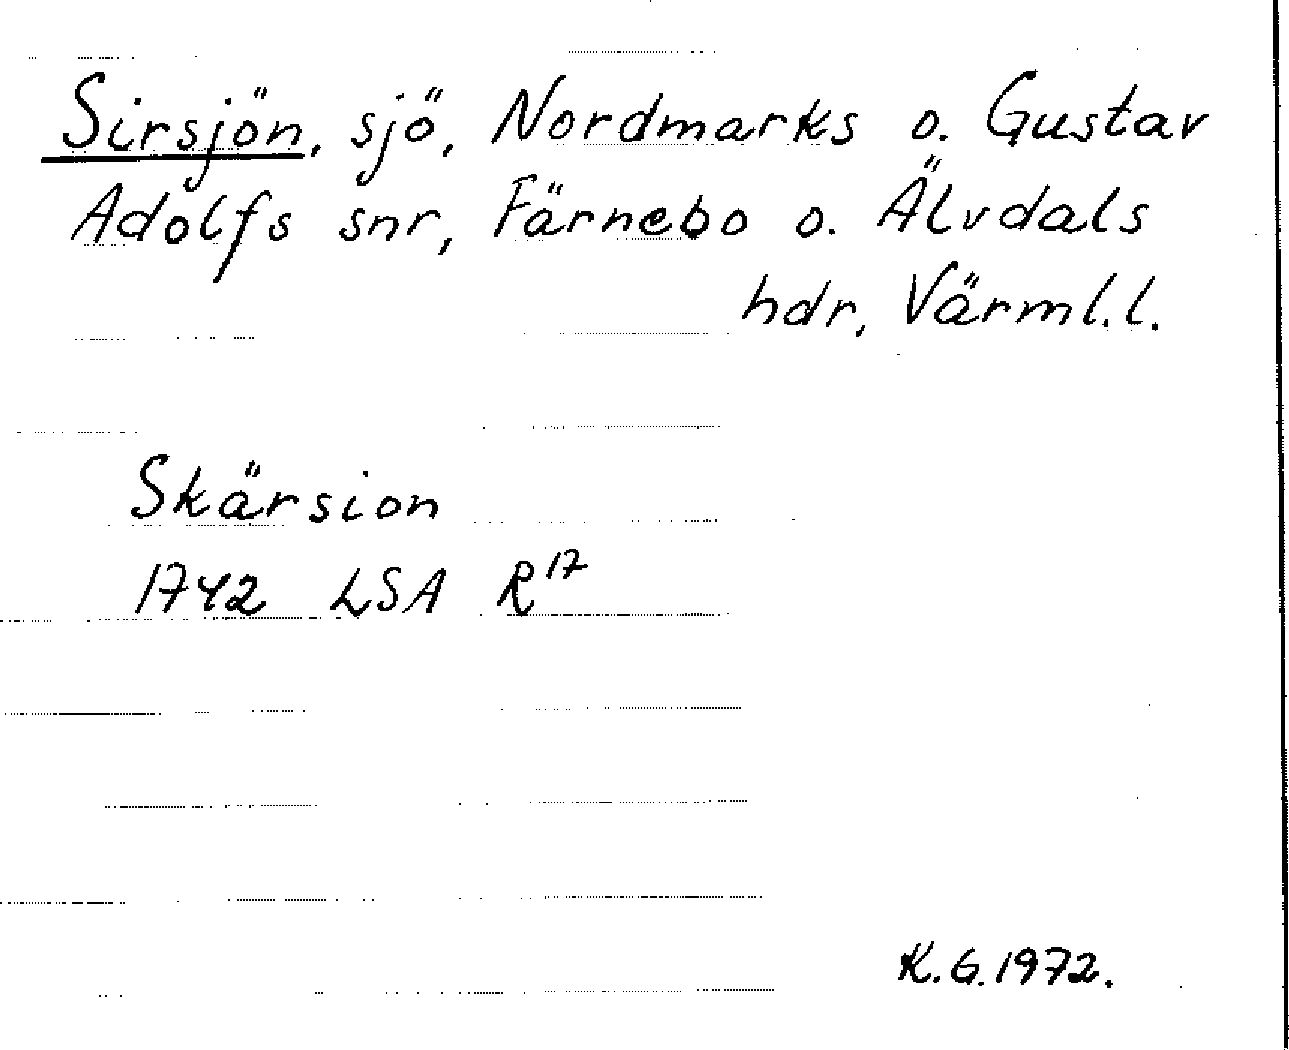 Sirsjön, sjö, Nordmarks o. Gustav
Adolfs snr, Färnebo o. Älvdals
hdr, Värml.l.
Skärsion
1742 LSA R17
K.G.1972.